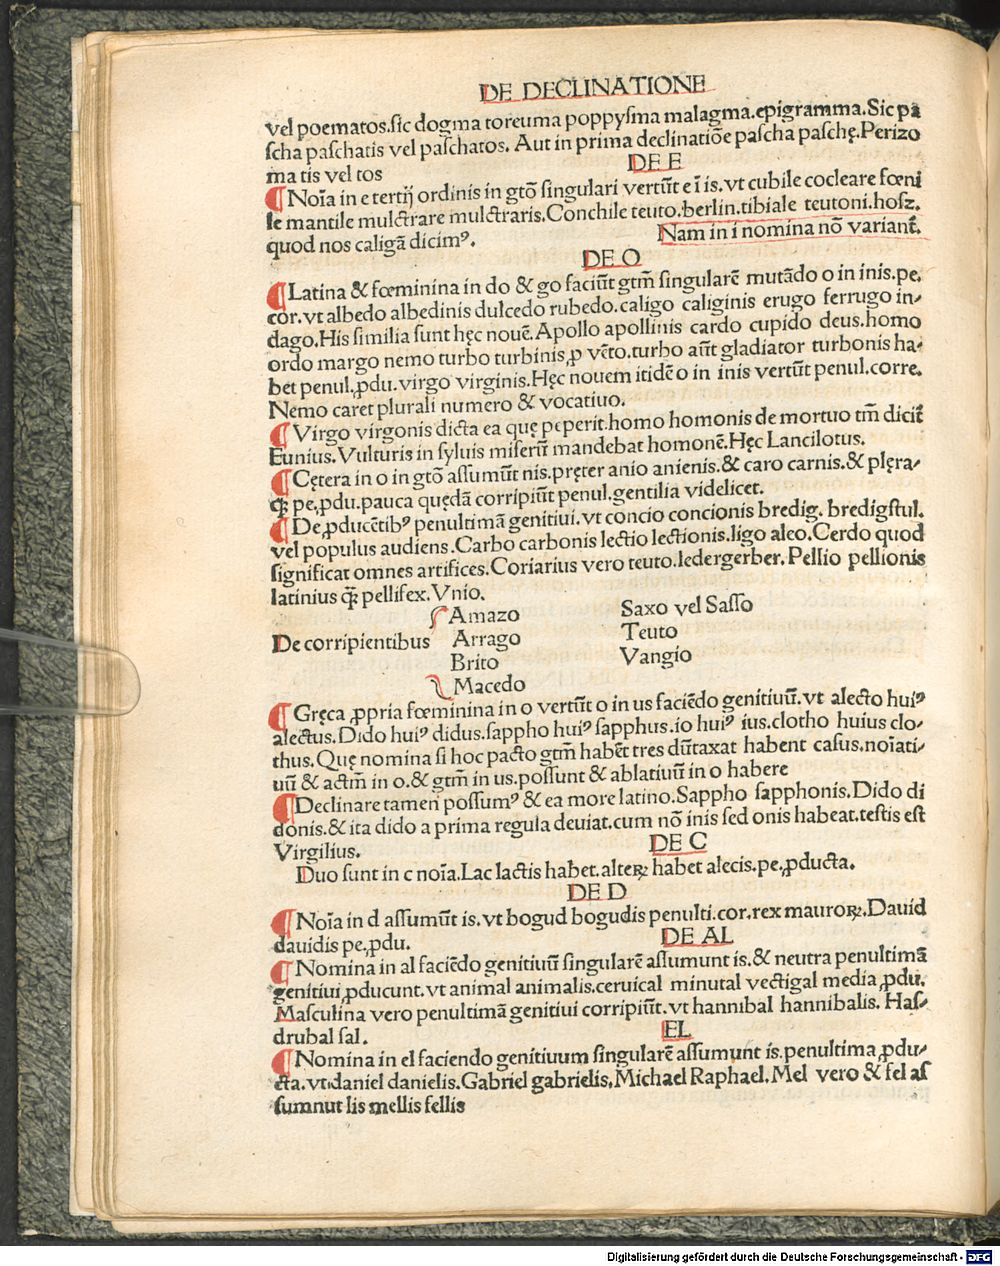 DE DECLINATIONE
vel poematos.sic dogma toreuma poppysma malagma.epigramma.Sic pa
scha paschatis vel paschatos. Aut in prima declinatiõe pascha paschę.Perizo
ma tis vel tos
DE E
¶ Noĩa in e tertij ordinis in gtõ singulari vertũt e ĩ is.vt cubile cocleare fœni
le mantile mulctrare mulctraris.Conchile teuto.berlin.tibiale teutoni.hosz.
quod nos caligã dicimꝰ.
Nam in i nomina nõ variant̃.
DE O
¶ Latina & fœminina in do & go faciũt gtm̃ singularẽ mutãdo o in inis.pe.
cor.vt albedo albedinis dulcedo rubedo.caligo caliginis erugo ferrugo in-
dago.His similia sunt hęc nouẽ.Apollo apollinis cardo cupido deus.homo
ordo margo nemo turbo turbinis,ꝓ vẽto.turbo aũt gladiator turbonis ha-
bet penul.ꝓdu.virgo virginis.Hęc nouem itidẽ o in inis vertũt penul.corre.
Nemo caret plurali numero & vocatiuo.
¶ Virgo virgonis dicta ea quę peperit.homo homonis de mortuo tm̃ dicit̃
Eunius.Vulturis in syluis miserũ mandebat homonẽ.Hęc Lancilotus.
¶ Cętera in o in gtõ assumũt nis.pręter anio anienis.& caro carnis.& plęra-
q̃ꝫ pe,ꝓdu.pauca quędã corripiũt penul.gentilia videlicet.
¶ De ꝓducẽtibꝰ penultimã genitiui.vt concio concionis bredig. bredigstul.
vel populus audiens.Carbo carbonis lectio lectionis.ligo aleo.Cerdo quod
significat omnes artifices.Coriarius vero teuto.ledergerber.Pellio pellionis
latinius q̃ꝫ pellifex.Vnio.
Amazo Saxo vel Sasso
De corripientibus Arrago Teuto
Brito Vangio
Macedo
¶ Gręca ꝓpria fœminina in o vertũt o in us faciẽdo genitiuũ.vt alecto huiꝰ
alectus.Dido huiꝰ didus.sappho huiꝰ sapphus.io huiꝰ ius.clotho huius clo-
thus.Quę nomina si hoc pacto gtm̃ habẽt tres dũtaxat habent casus.noĩati-
uũ & actm̃ in o.& gtm̃ in us.possunt & ablatiuũ in o habere
¶ Declinare tamen possumꝰ & ea more latino.Sappho sapphonis.Dido di
donis.& ita dido a prima regula deuiat.cum nõ inis sed onis habeat.testis est
Virgilius.
DE C
Duo sunt in c noĩa.Lac lactis habet.alteꝝ habet alecis.pe,ꝓducta.
DE D
¶ Noĩa in d assumũt is.vt bogud bogudis penulti.cor.rex mauroꝝ.Dauid
dauidis pe,ꝓdu.
DE AL
¶ Nomina in al faciẽdo genitiuũ singularẽ assumunt is.& neutra penultimã
genitiui ꝓducunt.vt animal animalis.ceruical minutal vectigal media ꝓdu.
Masculina vero penultimã genitiui corripiũt.vt hannibal hannibalis. Has-
drubal sal.
EL
¶ Nomina in el faciendo genitiuum singularẽ assumunt is.penultima ꝓdu-
cta.vt daniel danielis.Gabriel gabrielis,Michael Raphael.Mel vero & fel as
sumnut lis mellis fellis
Digitalisierung gefördert durch die Deutsche Forschungsgemeinschaft - DFG